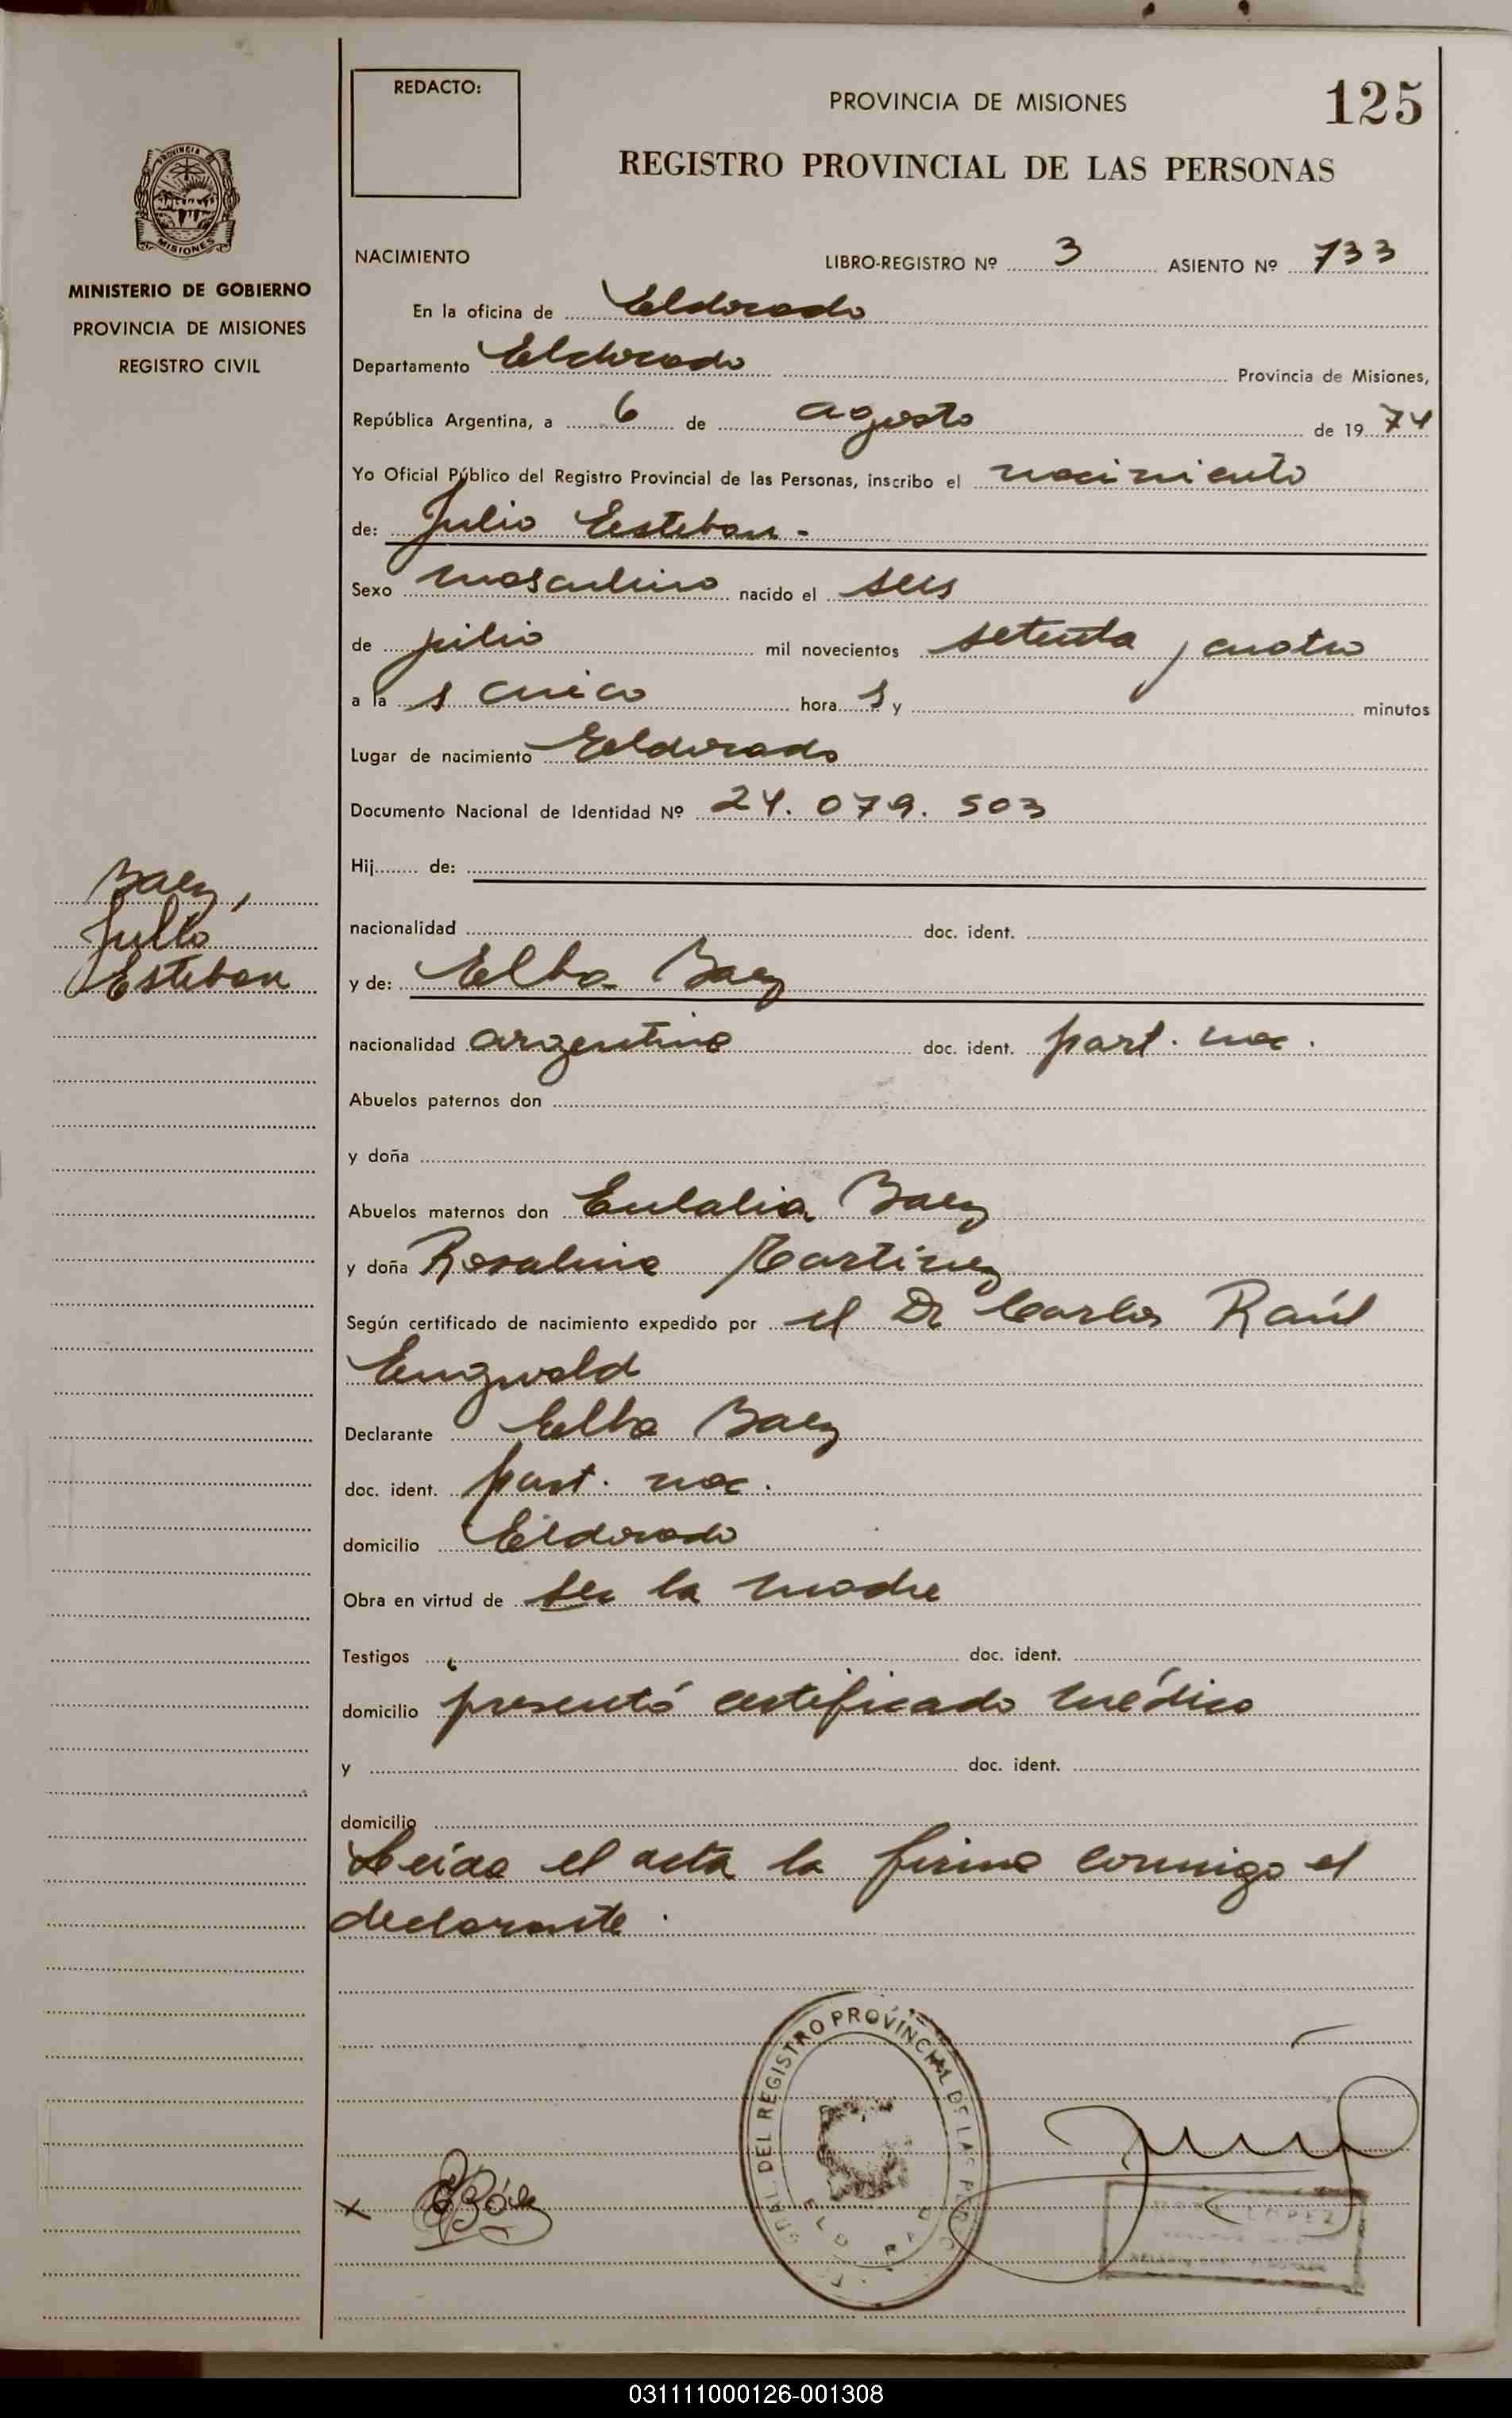 REDACTO:
PROVINCIA DE MISIONES
125
REGISTRO PROVINCIAL DE LAS PERSONAS
PROVINCIA DE
MISIONES
MINISTERIO DE GOBIERNO
PROVINCIA DE MISIONES
REGISTRO CIVIL
NACIMIENTO LIBRO-REGISTRO Nº 3 ASIENTO Nº 733
En la oficina de Eldorado
Departamento Eldorado Provincia de Misiones,
República Argentina, a 6 de agosto de 1974
Yo Oficial Público del Registro Provincial de las Personas, inscribo el nacimiento
de: Julio Esteban -
Sexo masculino nacido el seis
de julio mil novecientos setenta y cuatro
a la s cinco hora s y minutos
Lugar de nacimiento Eldorado
Documento Nacional de Identidad Nº 24.079.503
Hij de:
Baez,
Julio
Esteban
nacionalidad doc. ident.
y de: Elba Baez
nacionalidad argentina doc. ident. part. nac.
Abuelos paternos don
y doña
Abuelos maternos don Eulalia Baez
y doña Rosalina Martinez
Según certificado de nacimiento expedido por el Dr Carlos Raúl
Declarante Elba Baez
doc. ident. part. nac.
domicilio Eldorado
Obra en virtud de ser la madre
Testigos doc. ident.
domicilio presentó certificado médico
y doc. ident.
domicilio
Leída el acta la firma conmigo el
declarante.
DEL REGISTRO PROVINCIAL DE LAS
x EBáez
LOPEZ
031111000126-001308